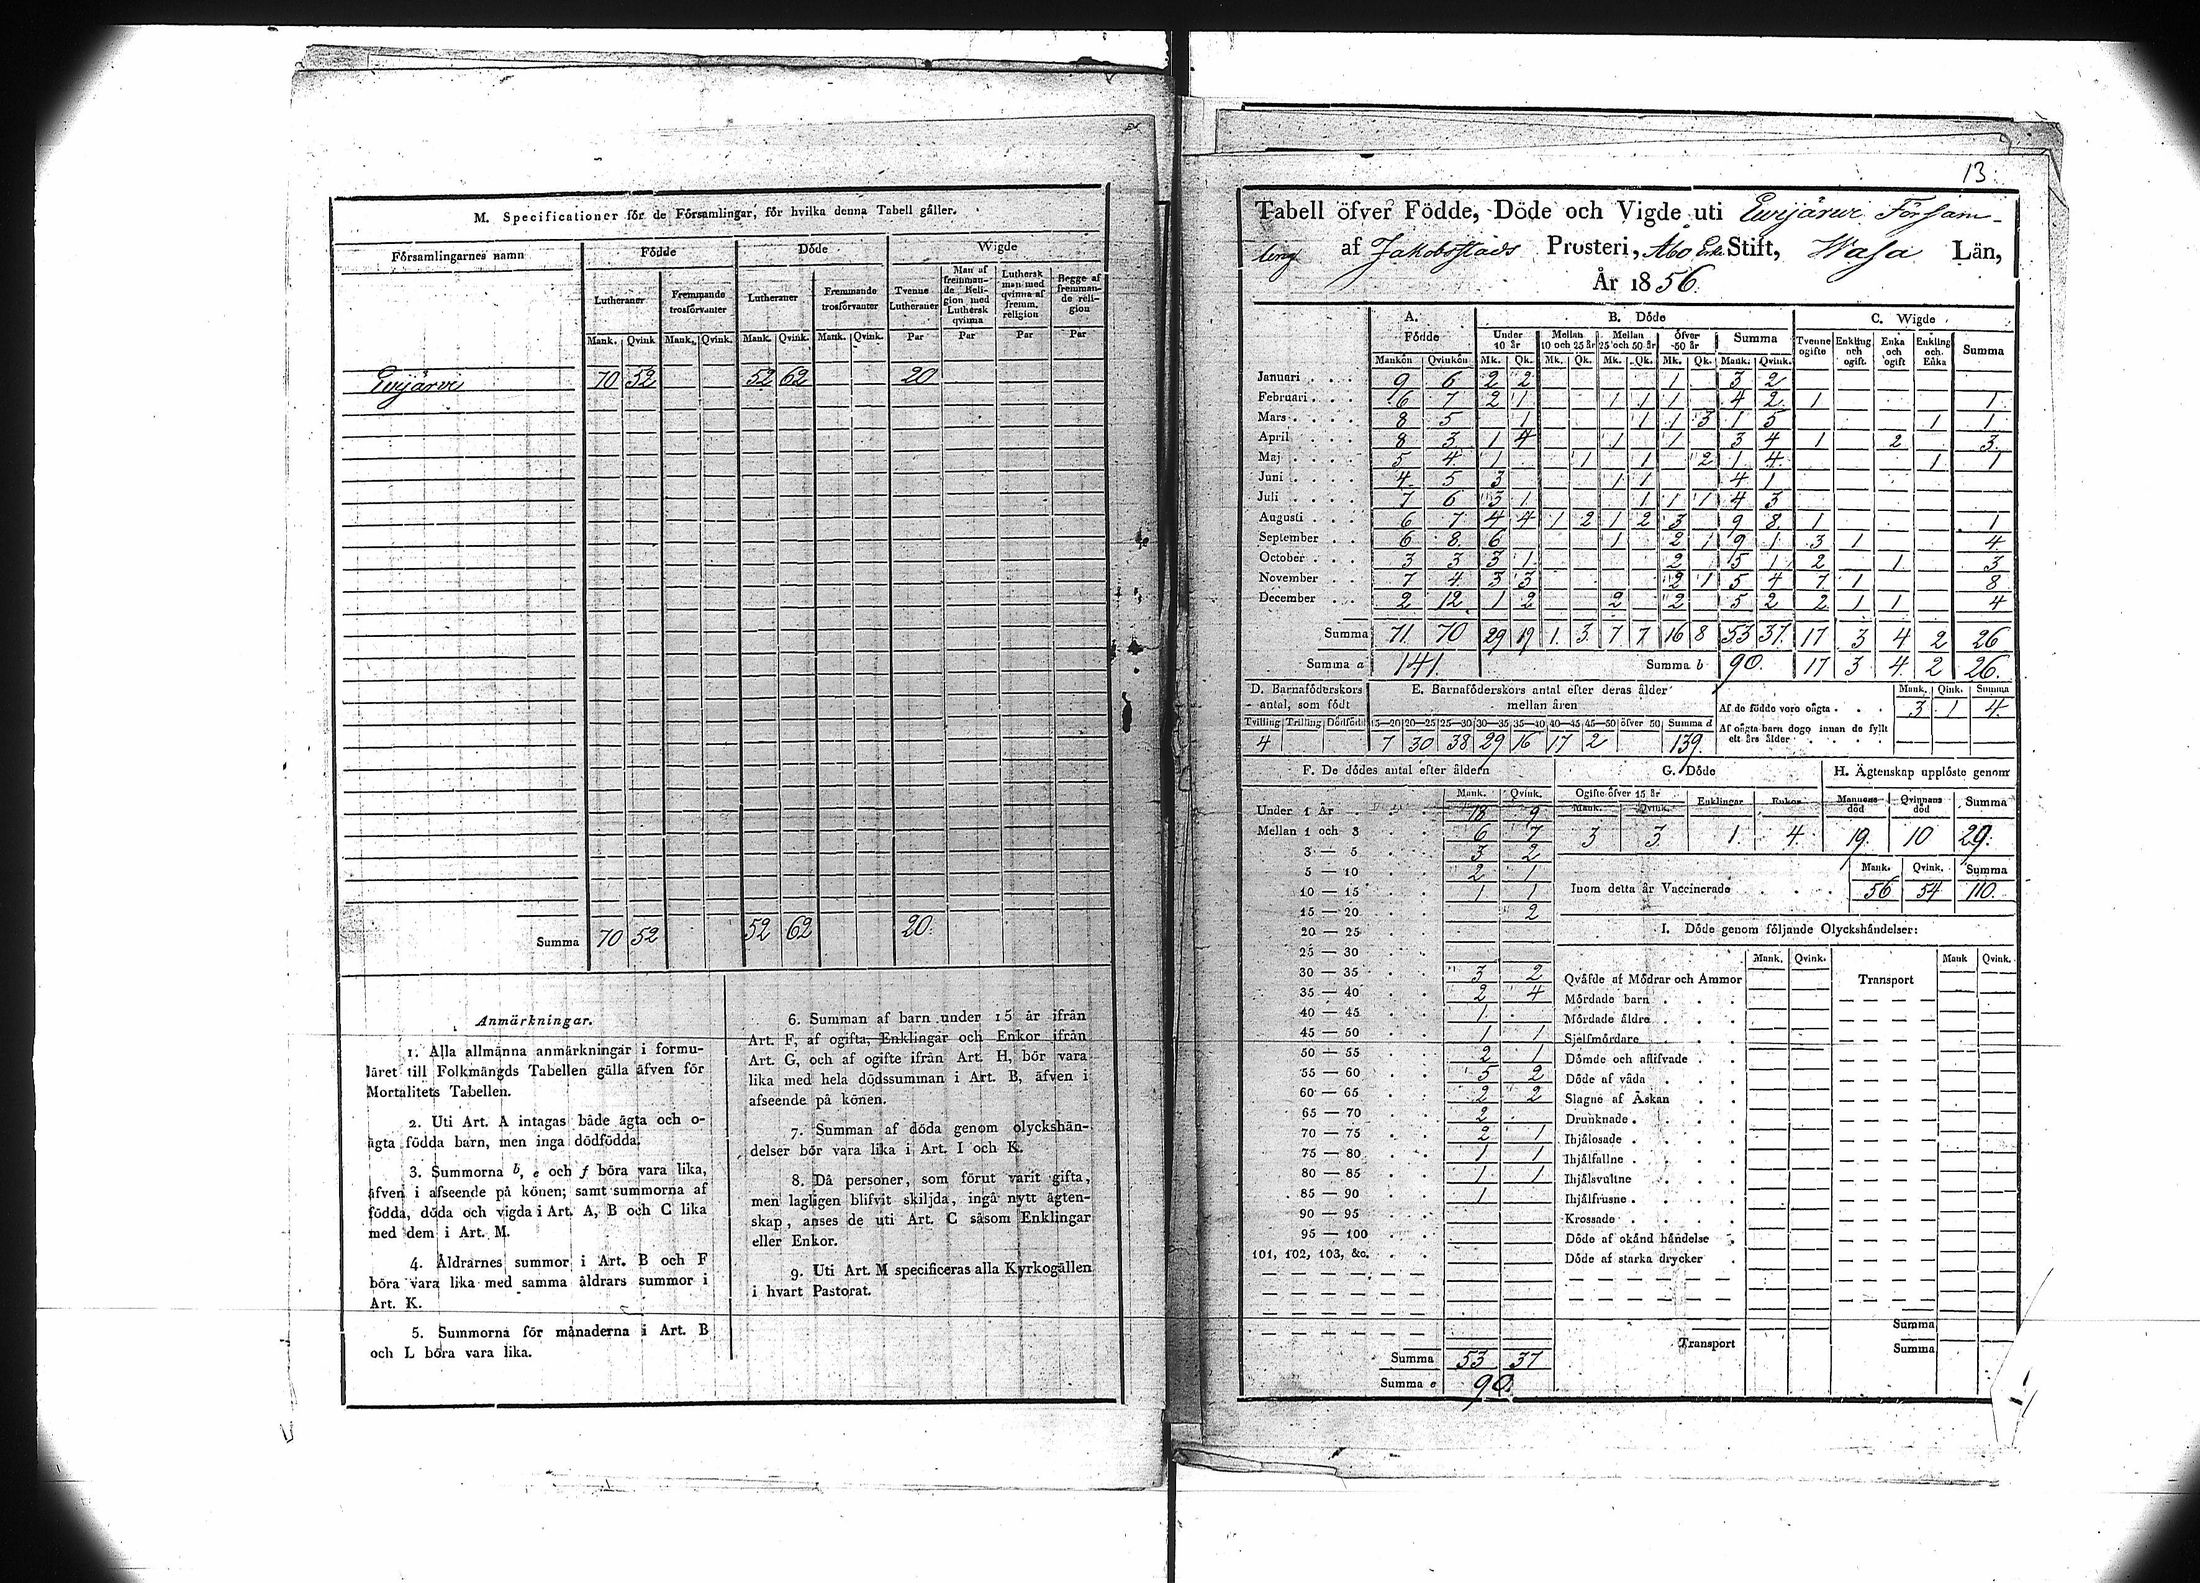 M. Specificationer för de Församlingar, för hvilka denna Tabell gäller.
Församlingarnes namn Födde Döde Wigde
Lutheraner Fremmande trosförvanter Lutheraner Fremmande trosförvanter Tvenne Lutheraner Man af fremmande Religion med Luthersk qvinna Luthersk man med qvinna af fremm. religion Begge af fremmande religion
Mank. Qvink Mank. Qvink. Mank. Qvink. Mank. Qvink. Par Par Par Par
Ewijärwi 70 52 52 62 20
Summa 70 52 52 62 20.
Anmärkningar.
1. Alla allmänna anmärkningar i formu-
läret till Folkmängds Tabellen gälla äfven för
Mortalitets Tabellen.
2. Uti Art. A intagas både ägta och o-
ägta födda barn, men inga dödfödda.
3. Summorna b, e och f böra vara lika,
äfven i afseende på könen; samt summorna af
födda, döda och vigda i Art. A, B och C lika
med dem i Art. M.
4. Åldrarnes summor i Art. B och F
böra vara lika med samma åldrars summor i
Art. K.
5. Summorna för månaderna i Art. B
och L böra vara lika.
6. Summan af barn under 15 år ifrån
Art. F, af ogifta, Enklingar och Enkor ifrån
Art. G, och af ogifte ifrån Art. H, bör vara
lika med hela dödssumman i Art. B, äfven i
afseende på könen.
7. Summan af döda genom olyckshän-
delser bör vara lika i Art. I och K.
8. Då personer, som förut varit gifta,
men lagligen blifvit skiljda, ingå nytt ägten-
skap, anses de uti Art. C såsom Enklingar
eller Enkor.
9. Uti Art. M specificeras alla Kyrkogällen
i hvart Pastorat.
13.
Tabell öfver Födde, Döde och Vigde uti Ewijärwi Församling
af Jakobstads Prosteri, Åbo Erke Stift, Wasa Län,
År 1856.
A. Födde B. Döde C. Wigde
Under 10 år Mellan 10 och 25 år Mellan 25 och 50 år Öfver 50 år Summa Tvenne ogifte Enkling och ogift. Enka och ogift Enkling och Enka Summa
Mankön Qvinkön Mk. Qk. Mk. Qk. Mk. Qk. Mk. Qk. Mank. Qvink.
Januari 9 6 2 2 1 3 2
Februari 6 7 2 1 1 1 1 4 2 1 1
Mars 8 5 1 1 1 3 1 5 1 1
April 8 3 1 4 1 1 3 4 1 2 3.
Maj 5 4 1 1 1 2 1 4 1 1
Juni 4 5 3 1 1 4 1
Juli 7 6 3 1 1 1 1 4 3
Augusti 6 7 4 4 1 2 1 2 3 9 8 1 1
September 6 8 6 1 2 1 9 1 3 1 4
October 3 3 3 1 2 5 1 2 1 3
November 7 4 3 3 2 1 5 4 7 1 8
December 2 12 1 2 2 2 5 2 2 1 1 4
Summa 71 70 29 19 1. 3. 7 7 16 8 53 37. 17 3 4 2 26
Summa a 141. Summa b 90. 17 3 4 2 26.
D. Barnaföderskors antal, som födt E. Barnaföderskors antal efter deras ålder mellan åren Mank. Qink. Summa
Af de födde voro oägta 3 1 4.
Tvilling Trilling Dödfödt 15—20 20—25 25—30 30—35 35—40 40—45 45—50 öfver 50 Summa d
Af oägta barn dogo innan de fyllt ett års ålder
4 7 30 38 29 16 17 2 139.
F. De dödes antal efter åldern G. Döde H. Ägtenskap upplöste genom
Mank. Qvink. Ogifte öfver 15 år Mank. Qvink. Enklingar Enkor Mannens död Qvinnans död Summa
Under 1 År 18 9
Mellan 1 och 3 6 7 3 3. 1. 4. 19. 10 29.
3 — 5 3 2
5 — 10 2 1
10 — 15 1 1
15 — 20 2
20 — 25
25 — 30
30 — 35 3 2
35 — 40 2 4
40 — 45 1
45 — 50 1 1
50 — 55 2 1
55 — 60 5 2
60 — 65 2 2
65 — 70 2
70 — 75 2 1
75 — 80 1 1
80 — 85 1 1
85 — 90 1
90 — 95
95 — 100
101, 102, 103, &c.
Summa 53 37
Summa e 90.
Mank. Qvink. Summa
Inom detta år Vaccinerade 56 54 110.
I. Döde genom följande Olyckshändelser:
Mank. Qvink. Mank Qvink.
Qväfde af Mödrar och Ammor Transport
Mördade barn
Mördade äldre
Sjelfmördare
Dömde och aflifvade
Döde af våda
Slagne af Åskan
Drunknade
Ihjälosade
Ihjälfallne
Ihjälsvultne
Ihjälfrusne
Krossade
Döde af okänd händelse
Döde af starka drycker
Summa
Transport Summa